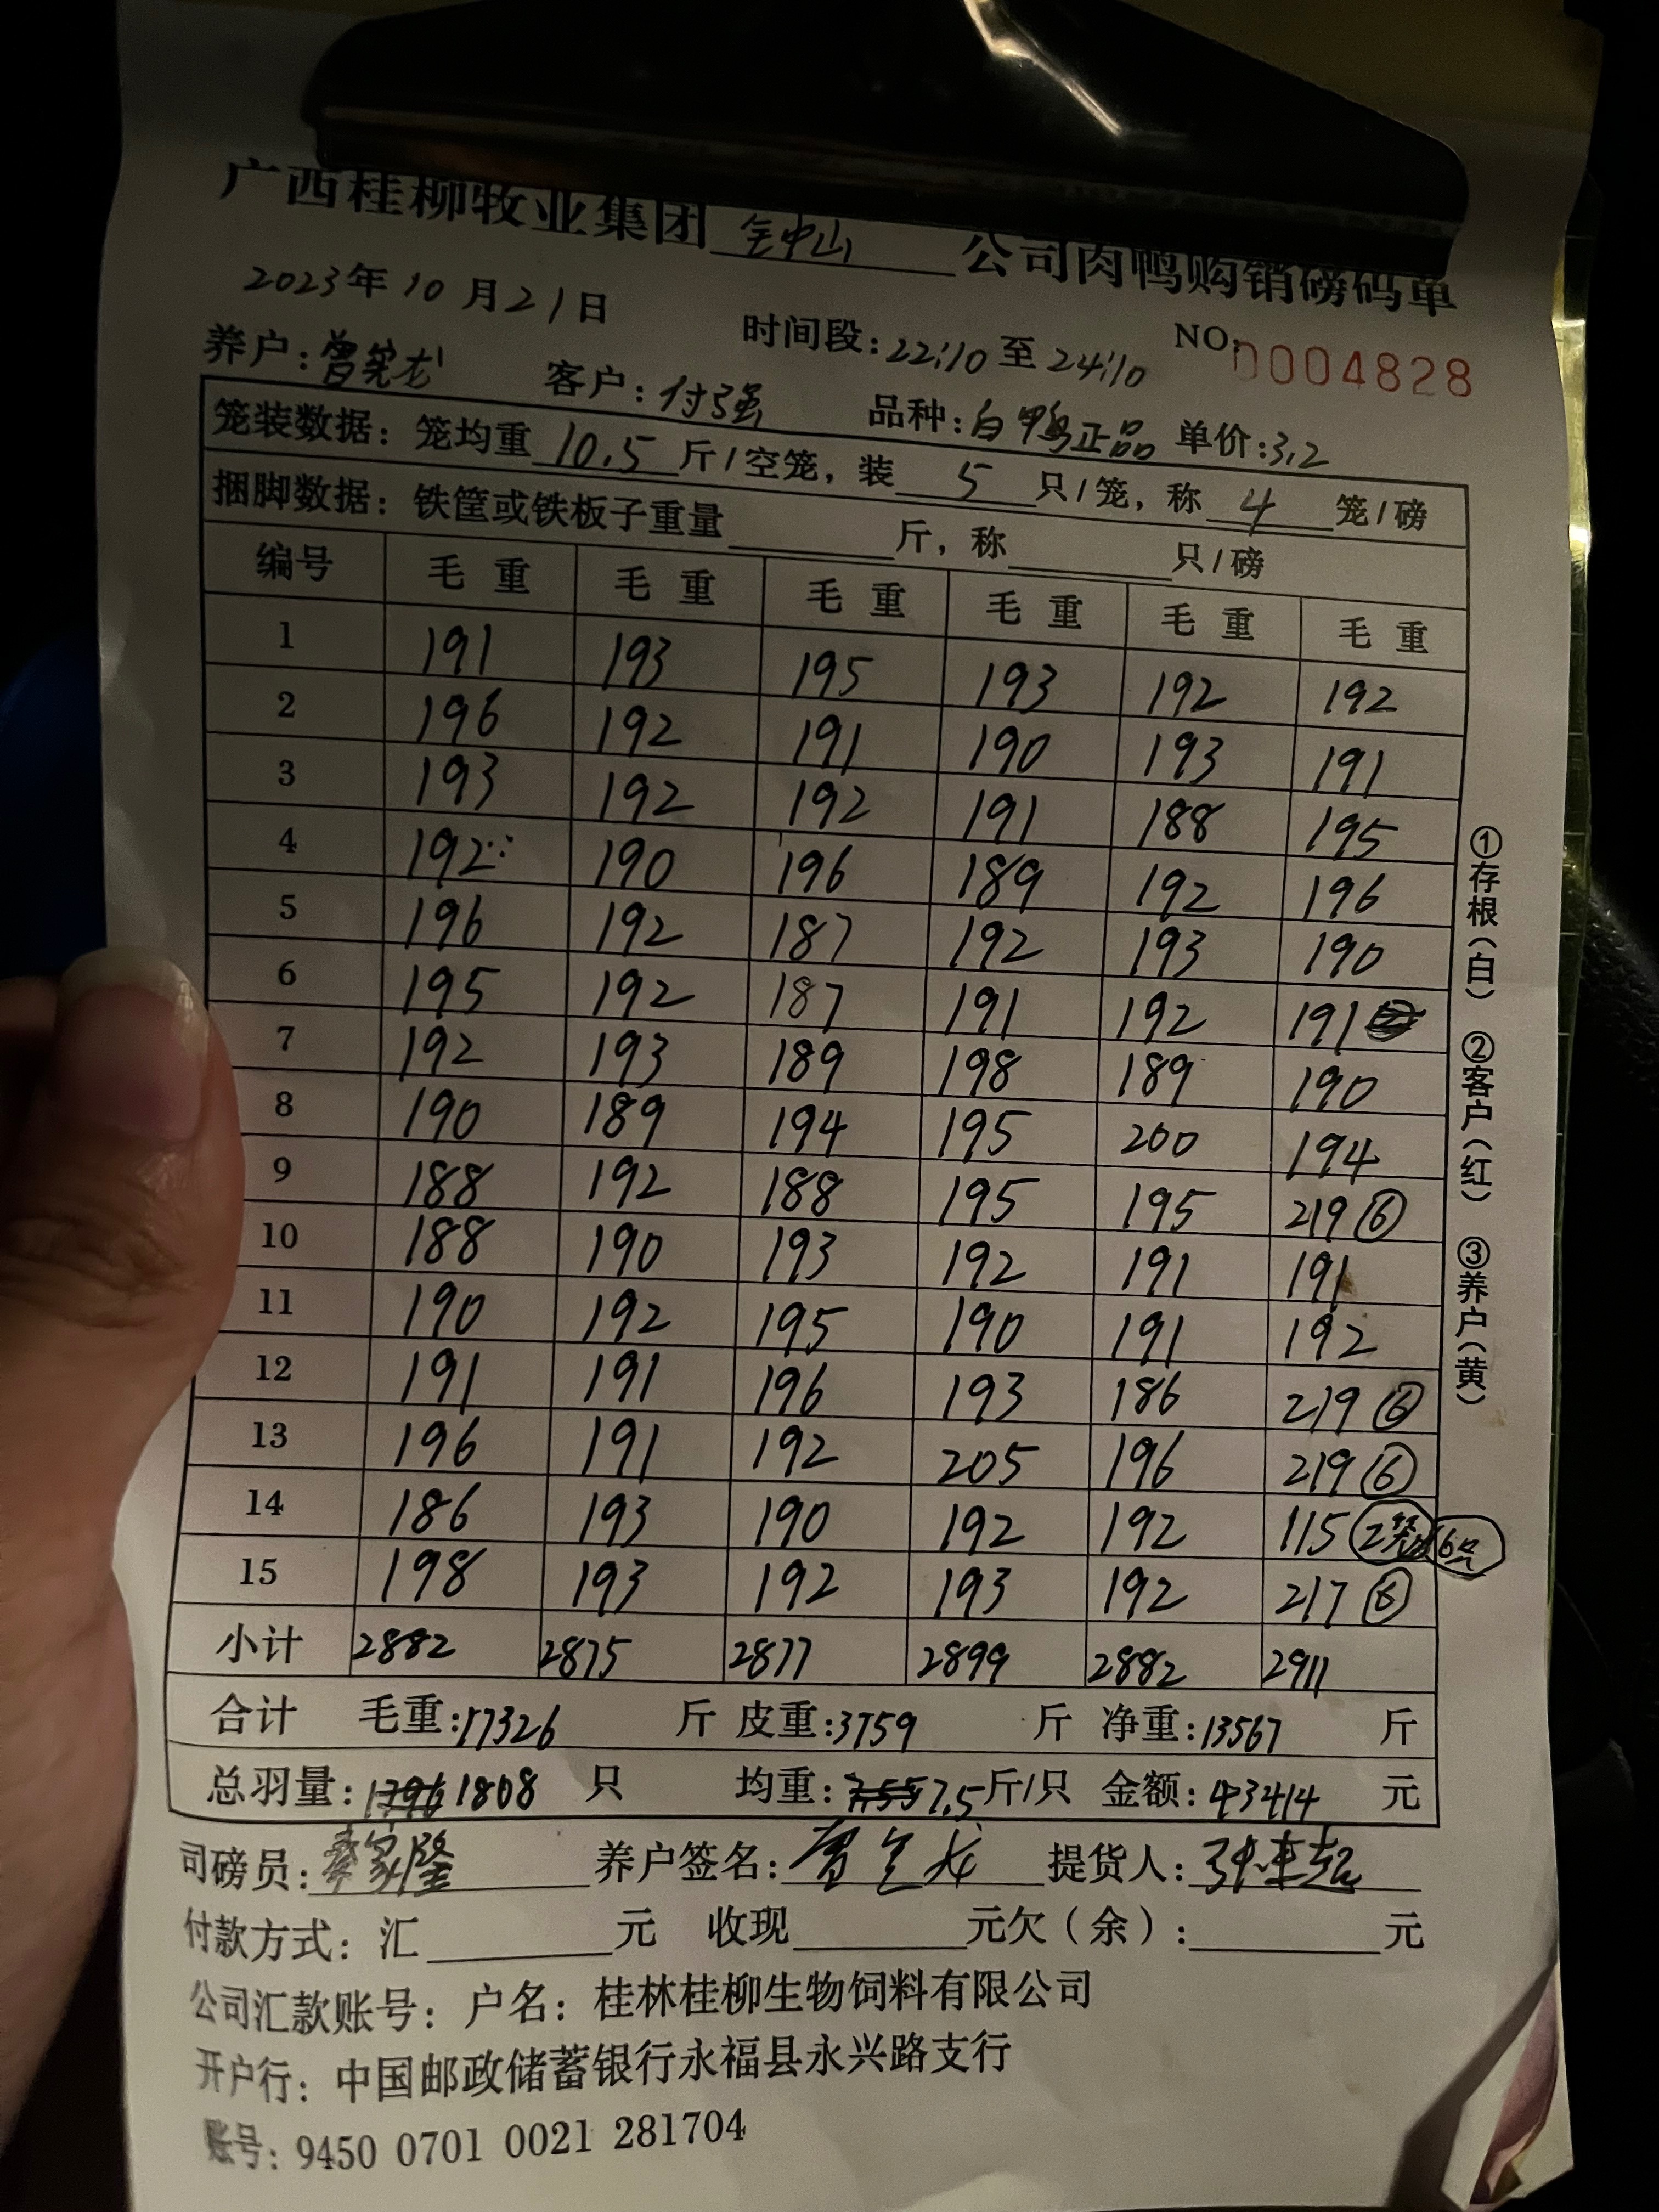 广西桂柳牧业集团 全中山 公司肉鸭购销磅码单
2023年10月21日 时间段:22:10至24:10 NO:0004828
养户:曾宪龙 客户:付强 品种:白鸭正品 单价:3.2
笼装数据:笼均重10.5斤/空笼,装5只/笼,称4笼/磅
捆脚数据:铁筐或铁板子重量 斤,称 只/磅
编号 毛重 毛重 毛重 毛重 毛重 毛重
1 191 193 195 193 192 192
2 196 192 191 190 193 191
3 193 192 192 191 188 195
4 192 190 196 189 192 196
5 196 192 187 192 193 190
6 195 192 187 191 192 191
7 192 193 189 198 189 190
8 190 189 194 195 200 194
9 188 192 188 195 195 219⑥
10 188 190 193 192 191 191
11 190 192 195 190 191 192
12 191 191 196 193 186 219⑥
13 196 191 192 205 196 219⑥
14 186 193 190 192 192 115 2笼 16只
15 198 193 192 193 192 217⑥
小计 2882 2875 2877 2899 2882 2911
合计 毛重:17326 斤 皮重:3759 斤 净重:13567 斤
总羽量:1796 1808 只 均重:7.55 7.5斤/只 金额:43414 元
司磅员: 家隆 养户签名:曾宪龙 提货人:
付款方式:汇 元 收现 元欠(余): 元
公司汇款账号:户名:桂林桂柳生物饲料有限公司
开户行:中国邮政储蓄银行永福县永兴路支行
账号:9450 0701 0021 281704
①存根(白) ②客户(红) ③养户(黄)